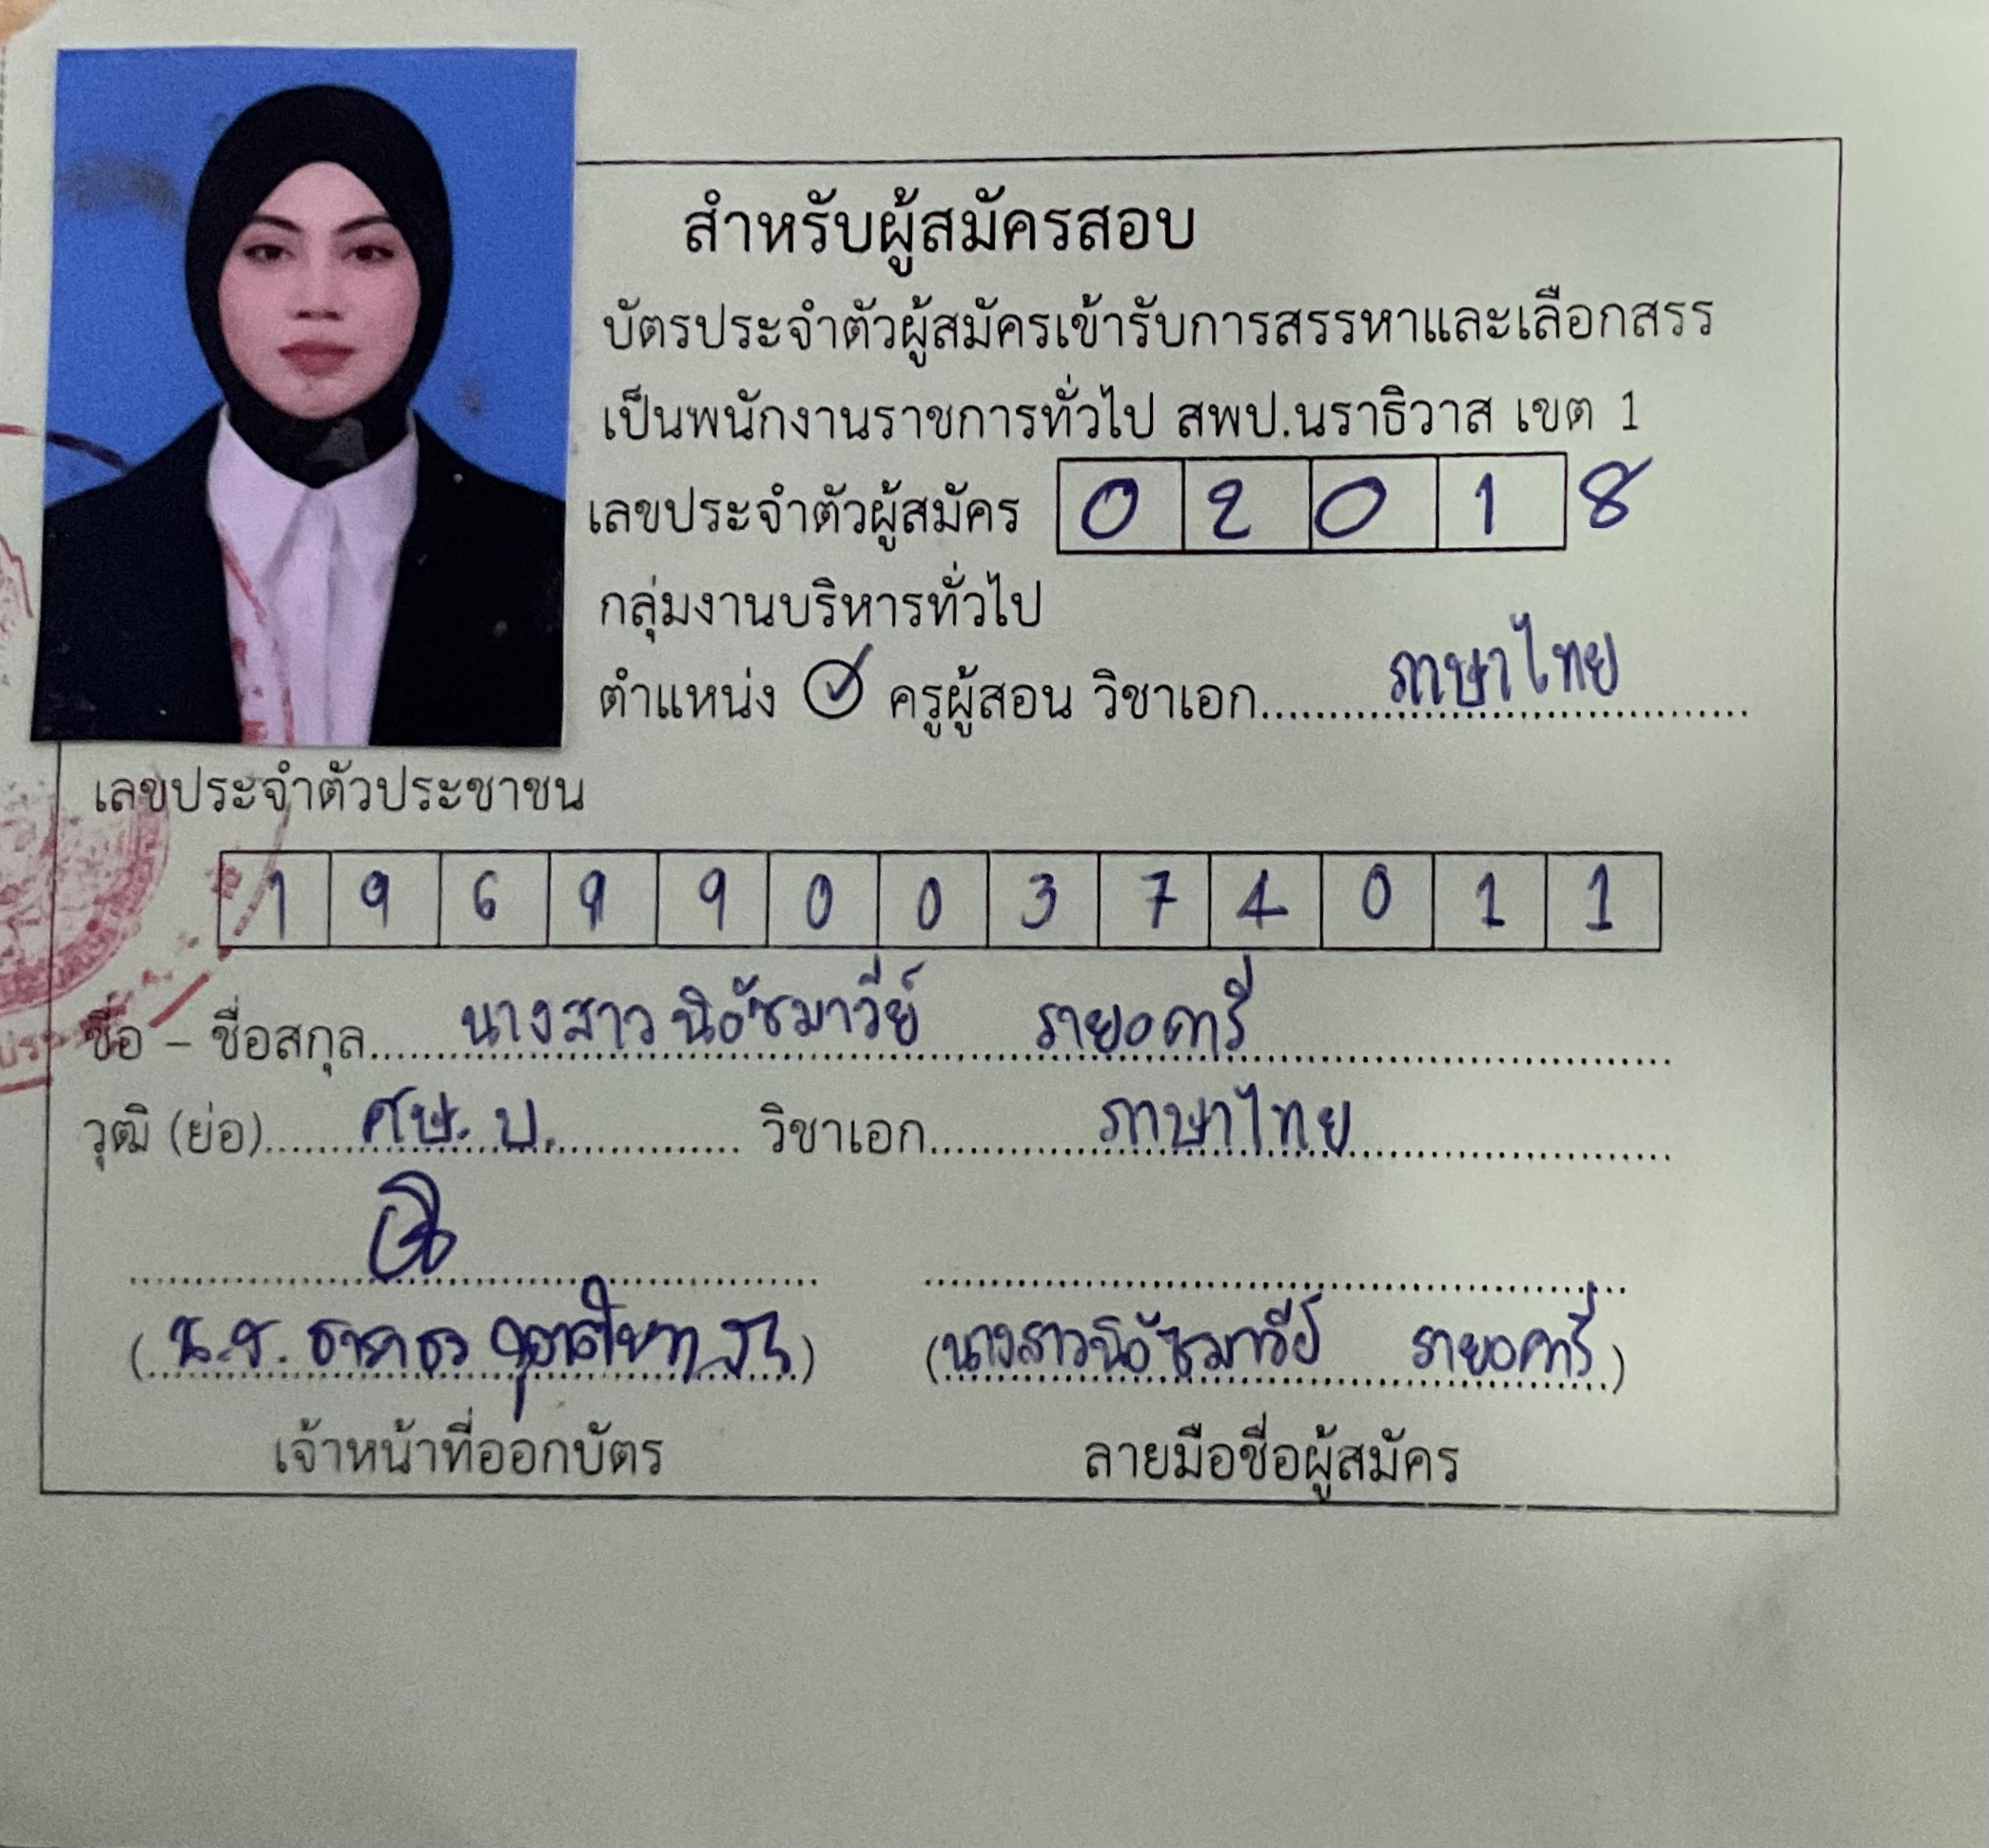 สำหรับผู้สมัครสอบ
บัตรประจำตัวผู้สมัครเข้ารับการสรรหาและเลือกสรร
เป็นพนักงานราชการทั่วไป สพป.นราธิวาส เขต 1
เลขประจำตัวผู้สมัคร 0 2 0 1 8
กลุ่มงานบริหารทั่วไป
ตำแหน่ง ✓ ครูผู้สอน วิชาเอก ภาษาไทย
เลขประจำตัวประชาชน
1 9 6 9 9 0 0 3 7 4 0 1 1
ชื่อ – ชื่อสกุล นางสาว นิอัซมาวีย์ รายอคารี
วุฒิ (ย่อ) ศษ.บ. วิชาเอก ภาษาไทย
(น.ส.) (นางสาวนิอัซมาวีย์ รายอคารี)
เจ้าหน้าที่ออกบัตร ลายมือชื่อผู้สมัคร